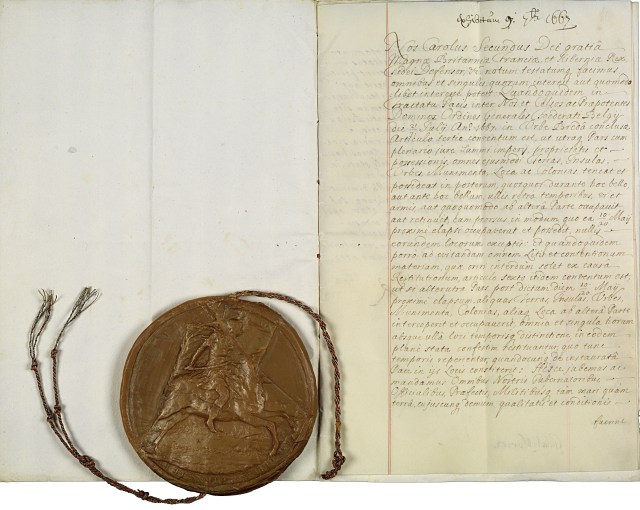 Exhibitum 9. 7bris 1667
Nos Carolus Secundus Dei gratiâ
Magnæ Britanniæ Franciæ et Hiberniæ Rex
Fidei Defensor, &c. notum testatumq; facimus
omnibus et singulis quorum interest aut quomodo
libet interesse poterit. Quandoquidem in
tractatu Pacis inter Nos et Celsos ac Præpotentes
Dominos Ordines Generales Fœderati Belgij
die Julij Ano. 1667. in Urbe Breda concluso
Articulo tertio conventum est, ut utraq; Pars cum
plenario jure summi imperij, proprietatis et
possessionis, omnes ejusmodi Terras, Insulas,
Urbes, Munimenta, Loca, ac Colonias teneat et
possideat in posterum, quotquot durante hoc bello,
aut ante hoc bellum ullis retro temporibus, vi et
armis, aut quoquomodo ab alterâ Parte occupavit
aut retinuit, eum prorsus in modum quo ea 10/20 Maij
proximè elapsi occupaverat et possedit, nullis
eorundem locorum exceptis: Et quandoquidem
porro ad evitandam omnem Litis et contentionum
materiam, quæ oriri interdum solet ex causâ
Restitutionum, articulo sexto itidem conventum est,
ut si alterutra Pars post dictam diem 10/20 Maij
proximi elapsum, aliquas Terras, Insulas, Urbes,
Munimenta, Colonias, aliaq; Loca ab alterâ Parte
interceperit et occupaverit, omnia et singula horum
absq; ulla loci temporisq; distinctione in eodem
planè statu confestim restituantur, quo tunc
temporis reperientur, quandocunq; de instauratâ
Pace in ijs Locis constiterit: Hisce jubemus ac
mandamus Omnibus Nostris Gubernatoribus
Officialibus, Præfectis, Militibusq; tam mari quam
terrâ, cujuscunq; demum qualitatis et conditionis
fuerint